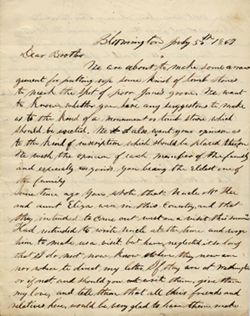 Bloomington July 5th 18
Dear Brother
We are about to make some arran
gement for putting up some kind of tomb stone
to mark the spot of poor Jane's grave. We want
to know whether you have any suggestions to make
as to the kind of a monument or tomb stone which
should be erected. We also want your opinion as
to the kind of inscription which should be placed thereon
We wish the opinion of each member of the family
and especially yours, you being the Eldest one of
the family
Some time ago you wrote that Uncle
and aunt Eliza was in this Country, and that
they intended to come out west on a visit this
I had intended to write uncle at the time and urge
him to make us a visit but have neglected it so long
that I do not now know where they now are
nor where to direct my letter. If they are at
or if not and should you see them, give them
my love, and tell them that all their friends and
relatives here, would be very glad to have them make